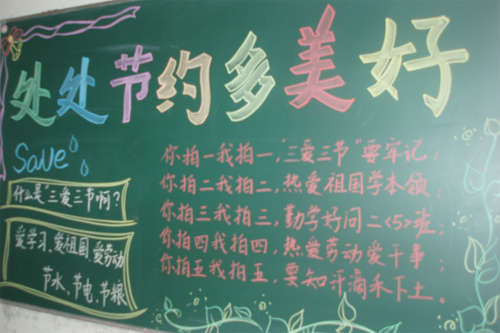 处处节约多美好
Save
什么是"三爱三节啊?
爱学习、爱祖国、爱劳动
节水、节电、节粮
你拍一我拍一,"三爱三节"要牢记;
你拍二我拍二,热爱祖国学本领;
你拍三我拍三,勤学好问二<5>班;
你拍四我拍四,热爱劳动爱干事;
你拍五我拍五,要知汗滴禾下土。